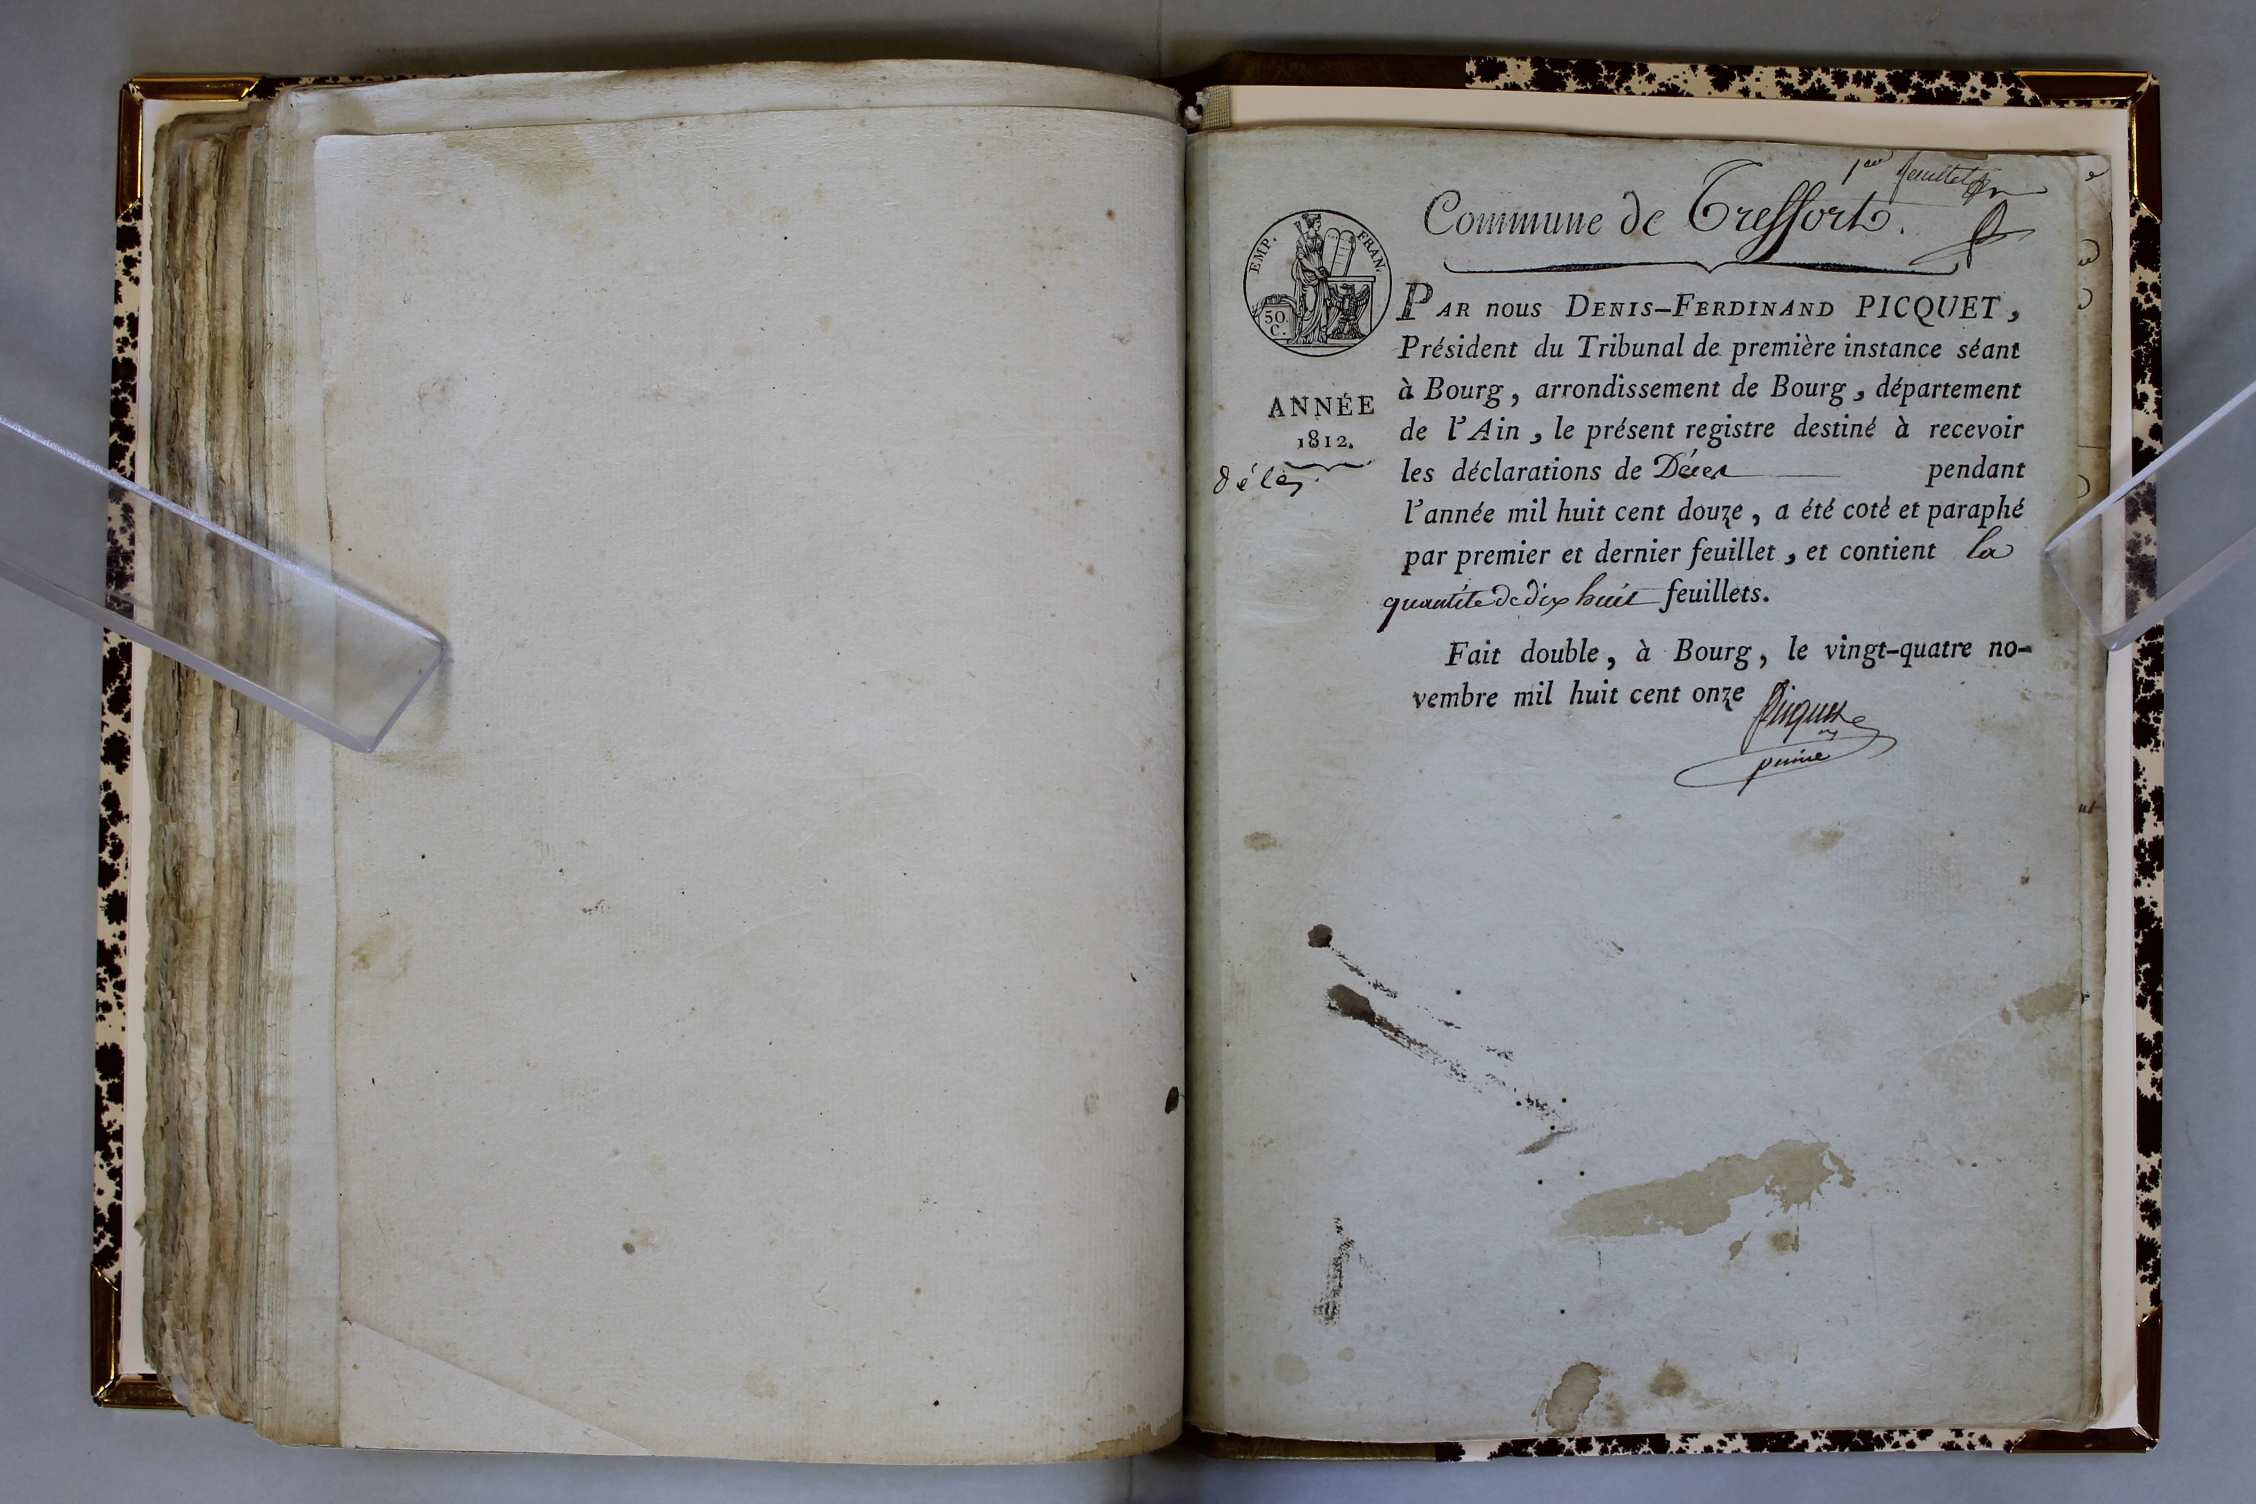 1er feuillet
Commune de Treffort.
EMP. FRAN.
50.
C.
ANNÉE
1812.
PAR nous DENIS-FERDINAND PICQUET,
Président du Tribunal de première instance séant
à Bourg, arrondissement de Bourg, département
de l'Ain, le présent registre destiné à recevoir
les déclarations de Décès pendant
l'année mil huit cent douze, a été coté et paraphé
par premier et dernier feuillet, et contient la
quantité de dix huit feuillets.
Fait double, à Bourg, le vingt-quatre no-
vembre mil huit cent onze
Picquet